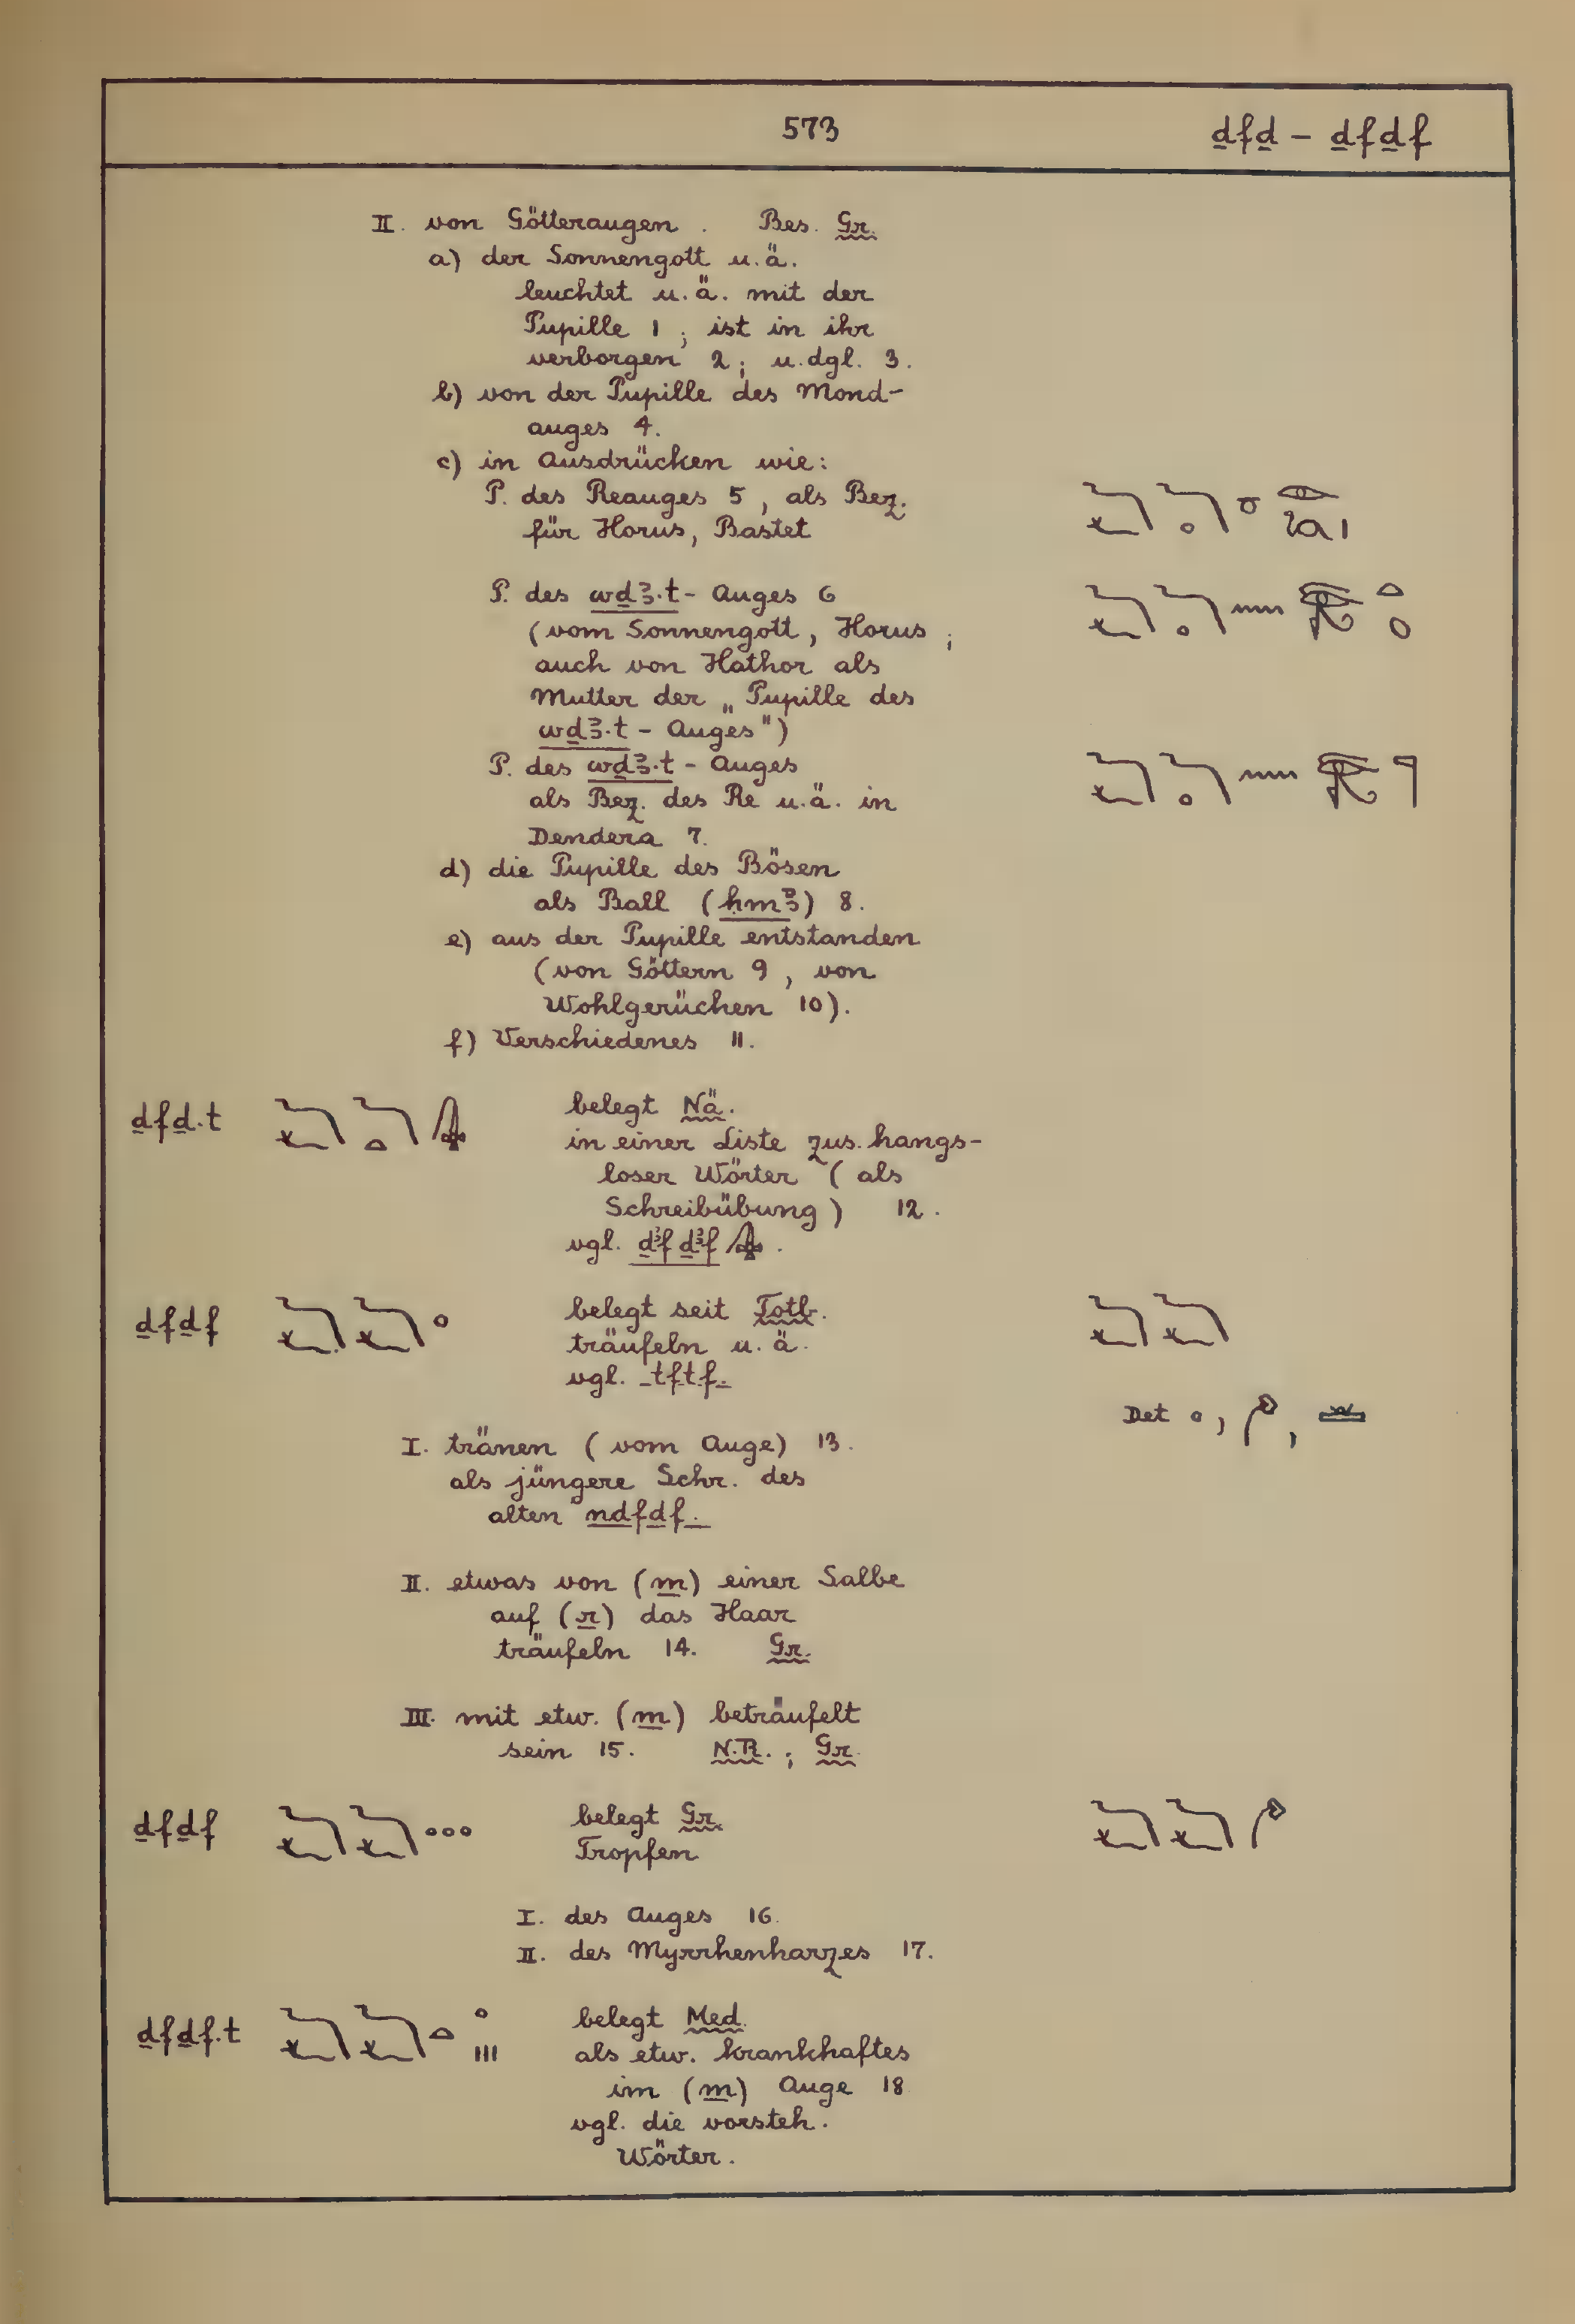 573
ḏfḏ - ḏfḏf
II. von Götteraugen. Bes. Gr.
a) der Sonnengott u.ä.
leuchtet u.ä. mit der
Pupille 1; ist in ihr
verborgen 2; u.dgl. 3.
b) von der Pupille des Mond-
auges 4.
c) in Ausdrücken wie:
P. des Reauges 5, als Bez.
für Horus, Bastet
P. des wḏꜣ.t- Auges 6
(vom Sonnengott, Horus;
auch von Hathor als
Mutter der „Pupille des
wḏꜣ.t - Auges")
P. des wḏꜣ.t - Auges
als Bez. des Re u.ä. in
Dendera 7.
d) die Pupille des Bösen
als Ball (ḥmꜣ) 8.
e) aus der Pupille entstanden
(von Göttern 9, von
Wohlgerüchen 10).
f) Verschiedenes 11.
ḏfḏ.t belegt Nä.
in einer Liste zus.hangs-
loser Wörter (als
Schreibübung) 12.
vgl. ḏꜣf ḏꜣf.
ḏfḏf belegt seit Totb.
träufeln u.ä.
vgl. tftf.
Det
I. tränen (vom Auge) 13.
als jüngere Schr. des
alten nḏfḏf.
II. etwas von (m) einer Salbe
auf (r) das Haar
träufeln 14. Gr.
III. mit etw. (m) beträufelt
sein 15. N.R.; Gr.
ḏfḏf belegt Gr.
Tropfen
I. des Auges 16.
II. des Myrrhenharzes 17.
ḏfḏf.t belegt Med.
als etw. krankhaftes
im (m) Auge 18
vgl. die vorsteh.
Wörter.